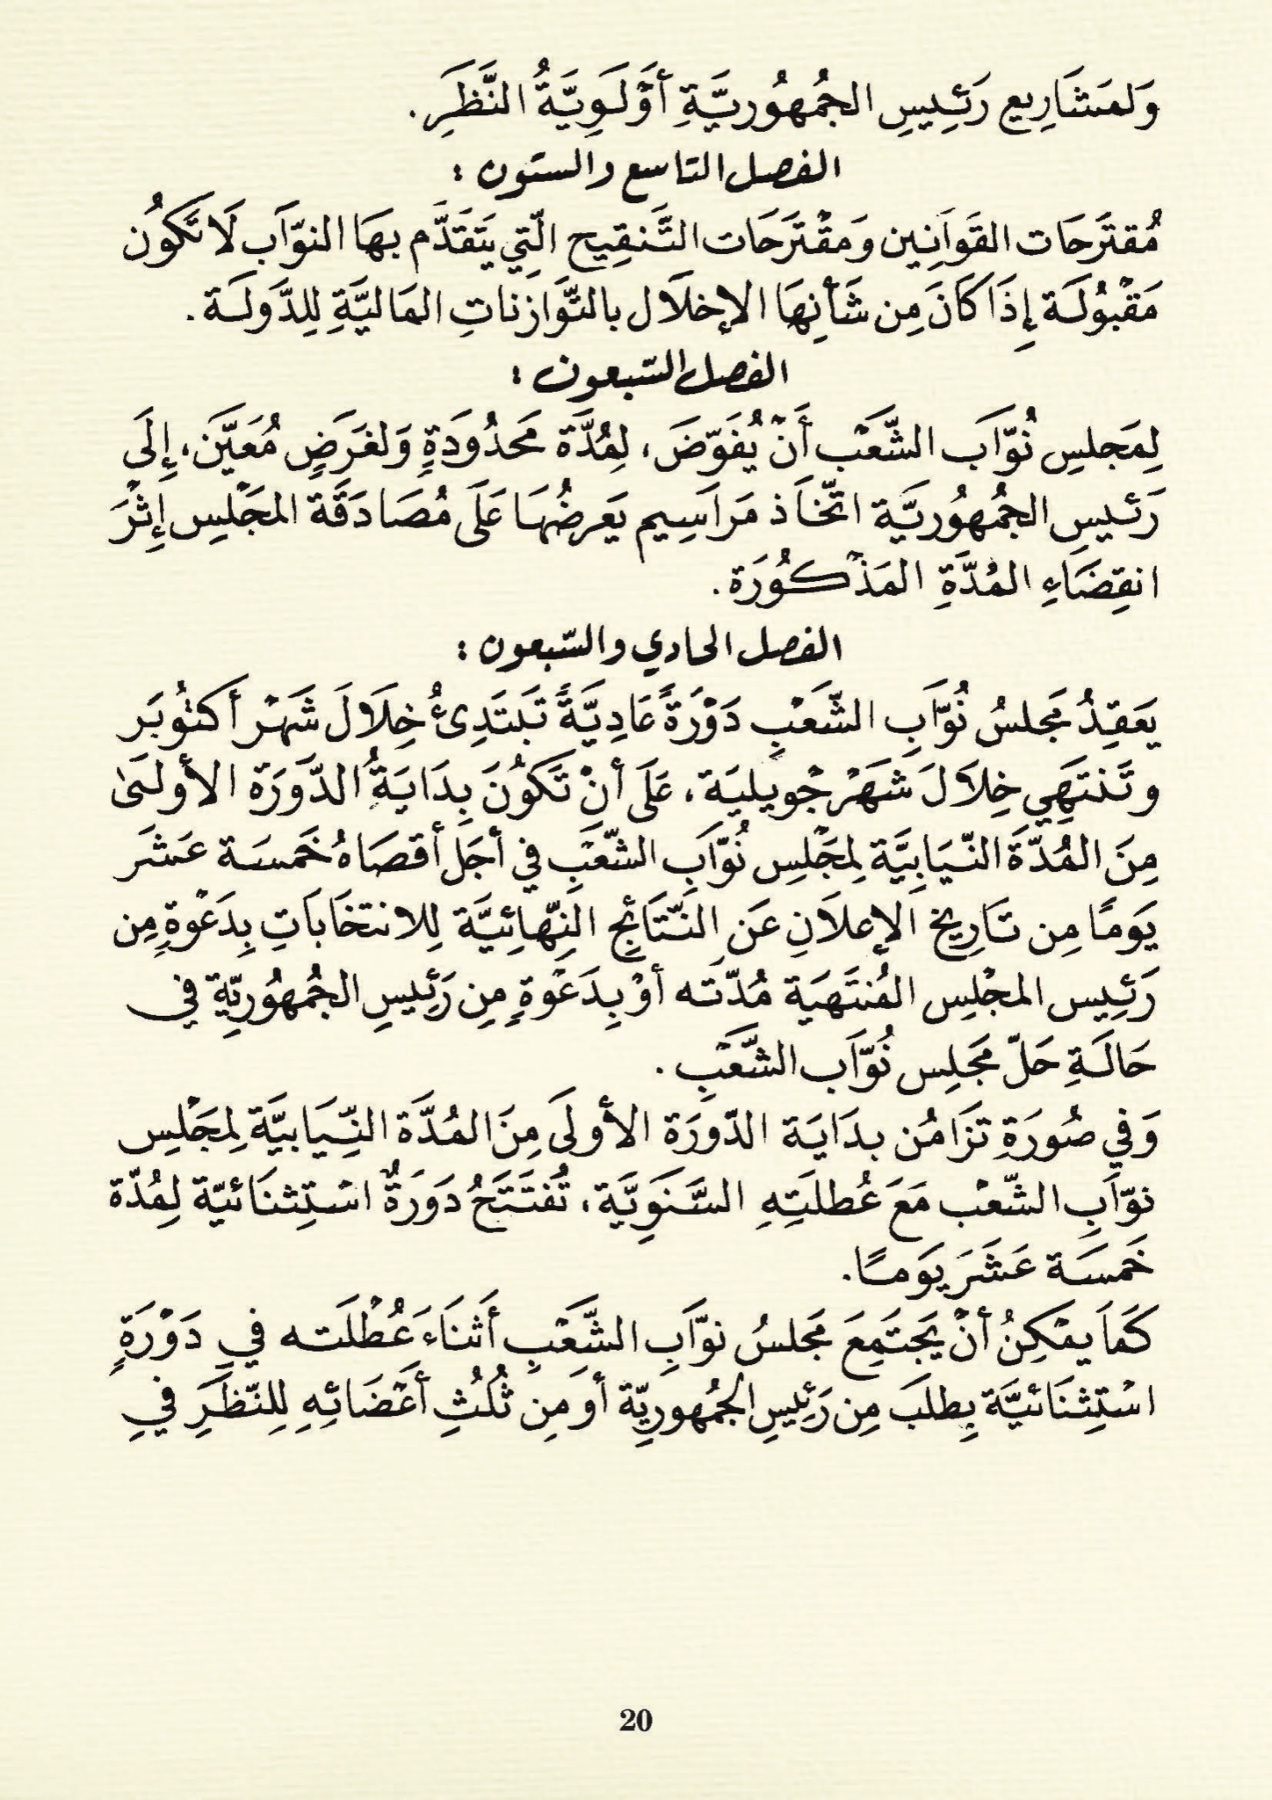 وَلمَشَارِيع رَئِيسِ الجُمْهُوريَّةِ أَوْلَوِيَّةُ النَّظَرِ.
الفصل التاسع والستون :
مُقترَحَات القَوَانِين وَمقْتَرَحَات التَّنقِيح الّتِي يَتَقَدَّم بهَا النوّاَب لَا تَكُون
مَقْبُولَة إِذَا كَانَ مِن شَأنِهَا الإخلاَل بالتَّوَازناتِ المَاليَّةِ لِلدَّولَة .
الفصل السّبعون :
لِمَجلسِ نُوّاَب الشَّعَْب أَنْ يُفَوّضَ، لِمُدَّة مَحدُودَةٍ وَلغَرَضٍ مُعَيَّن، إِلَى
رَئيسِ الجُمْهُوريَّة اتّخَاذ مَرَاسِيم يَعرضُهَا عَلَى مُصَادَقَة المَجْلسِ إِثْرَ
انقِضَاءِ المُدَّةِ المَذْكُورَة .
الفصل الحادي والسّبعون :
يَعَقِدُ مَجلسُ نُوَّابِ الشّعَْبِ دَوْرَةً عَادِيَّةً تَبتَدِئُ خِلَالَ شَهْر أَكتُوبَر
وتَنتَهِي خِلاَلَ شَهَْر جْويليَة، عَلَى أنْ تَكُونَ بِدَايَةُ الدَّورَة الأولَىٰ
مِنَ المُدَّةَ النّيَابِيَّة لِمَجْلِس نُوَّابِ الشّعَْبِ في أجَل أقصَاهُ خَمسَة عَشَر
يَومًا مِن تَارِيخ الإعلاَنِ عَن النَّتَائِج النِّهَائِيَّة لِلانتخَابَاتِ بِدَعْوةٍ مِن
رَئِيس المجْلِس المُنتَهيَة مُدّتَه أوْ بِدَعْوةٍ مِن رَئِيسِ الجُمهُوريّةِ في
حَالَةِ حَلّ مَجَلِس نُوّاَب الشَّعَْبِ .
وَفي صُورَةِ تَزَامُن بدَايَة الدّورَة الأولَى مِنَ المُدَّة النِّيَابيَّة لِمَجْلِس
نوّاَبِ الشّعَْب مَعَ عُطلَتِهِ السَّنَوِيَّة، تُفتَتَحُ دَورَةٌ اسْتِثنَائيّة لِمُدّة
خَمسَة عَشَرَ يَومًا.
كَمَا يمْكِنُ أنْ يَجتَمِعَ مَجلسُ نوَّابِ الشَّعَْبِ أَثنَاءَ عُطْلَته في دَوْرَةٍ
اسْتِثنَائيَّة بِطلَب مِن رَئِيسِ الجُمهُوريّة أو مِن ثُلُثِ أعْضَائِهِ لِلنّظَرِ في
20